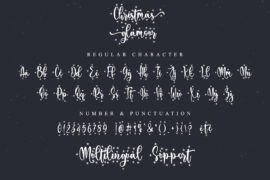 Christmas
glamour
REGULAR CHARACTER
Aa Bb Cc Dd Ee Ff Gg Hh Ii Jj Kk Ll Mm Nn
Oo Pp Qq Rr Ss Tt Uu Vv Ww Xx Yy Zz
NUMBER & PUNCTUATION
Moltilingual Support